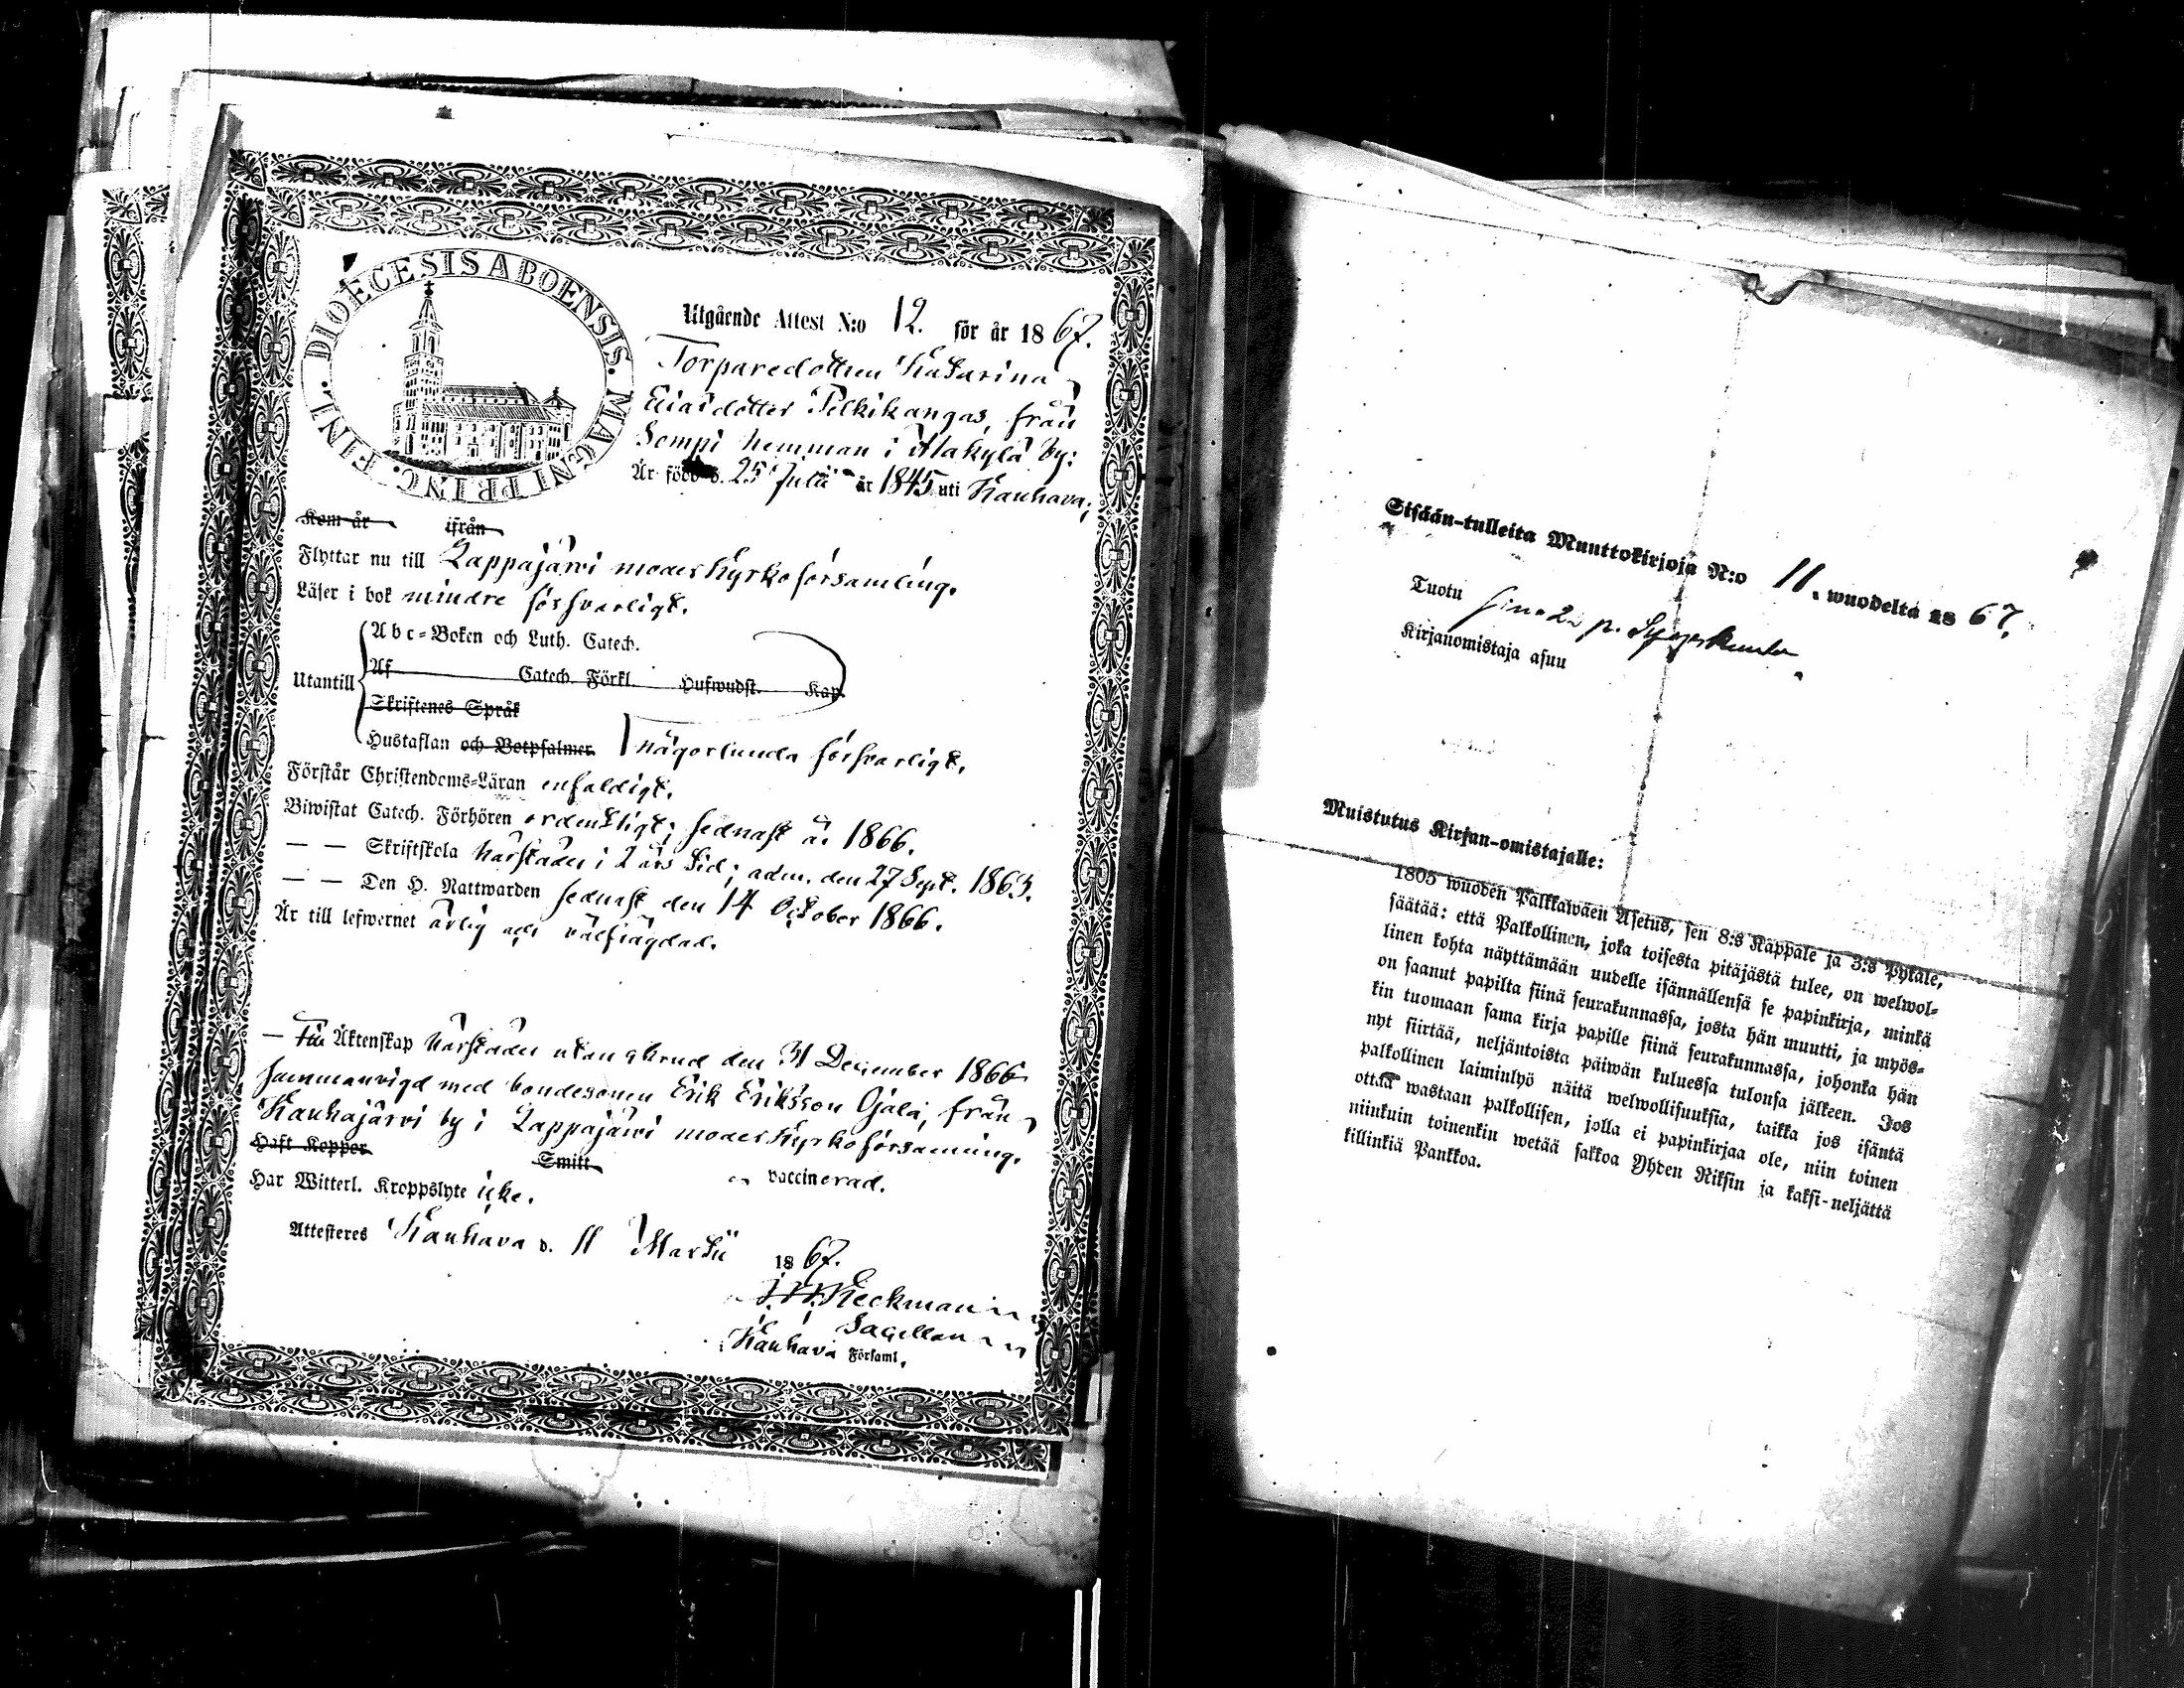 DIOECESIS ABOENSIS. MAGNI PRINC. FINL.
Utgående Attest N:o 12. för år 1867.
Torparedottren Katarina
Eliasdotter Pelkikangas, från
Sempi hemman i Alakylä by:
Är född d. 25 Julii år 1845 uti Kauhava;
Kom år ifrån
Flyttar nu till Lappajärvi moderkyrkoförsamling.
Läser i bok mindre försvarligt.
Utantill
Abc-Boken och Luth. Catech.
Af Catech. Förkl. Hufwudst. Kap.
Skriftenes Språk
Hustaflan och Botpsalmer. någorlunda försvarligt.
Förstår Christendoms-Läran enfaldigt.
Biwistat Catech. Förhören ordentligt; sednast år 1866.
— — Skriftskola härstädes i 2 års tid; adm. den 27 Sept. 1863.
— — Den H. Nattwarden sednast den 14 October 1866.
Är till lefwernet ärlig och välfrägdad.
— Till Äktenskap härstädes utan åbrud den 31 December 1866
sammanvigd med bondesonen Erik Eriksson Ojala, från
Kauhajärvi by i Lappajärvi moderkyrkoförsamling.
Haft Koppor Smitt vaccinerad.
Har Witterl. Kroppslyte icke.
Attesteres Kauhava d. 11 Martii 1867.
Heckman
Sacellan
Kauhava Församl.
Sisään-tulleita Muuttokirjoja N:o 11. wuodelta 1867.
Tuotu
Kirjanomistaja asuu
Muistutus Kirjan-omistajalle:
1805 wuoden Palkkawäen Asetus, sen 8:s Kappale ja 3:s Pykale,
säätää: että Palkollinen, joka toisesta pitäjästä tulee, on welwol-
linen kohta näyttämään uudelle isännällensä se papinkirja, minkä
on saanut papilta siinä seurakunnassa, josta hän muutti, ja myös-
kin tuomaan sama kirja papille siinä seurakunnassa, johonka hän
nyt siirtää, neljäntoista päiwän kuluessa tulonsa jälkeen. Jos
palkollinen laiminlyö näitä welwollisuuksia, taikka jos isäntä
ottaa wastaan palkollisen, jolla ei papinkirjaa ole, niin toinen
niinkuin toinenkin wetää sakkoa Yhden Riksin ja kaksi-neljättä
killinkiä Pankkoa.